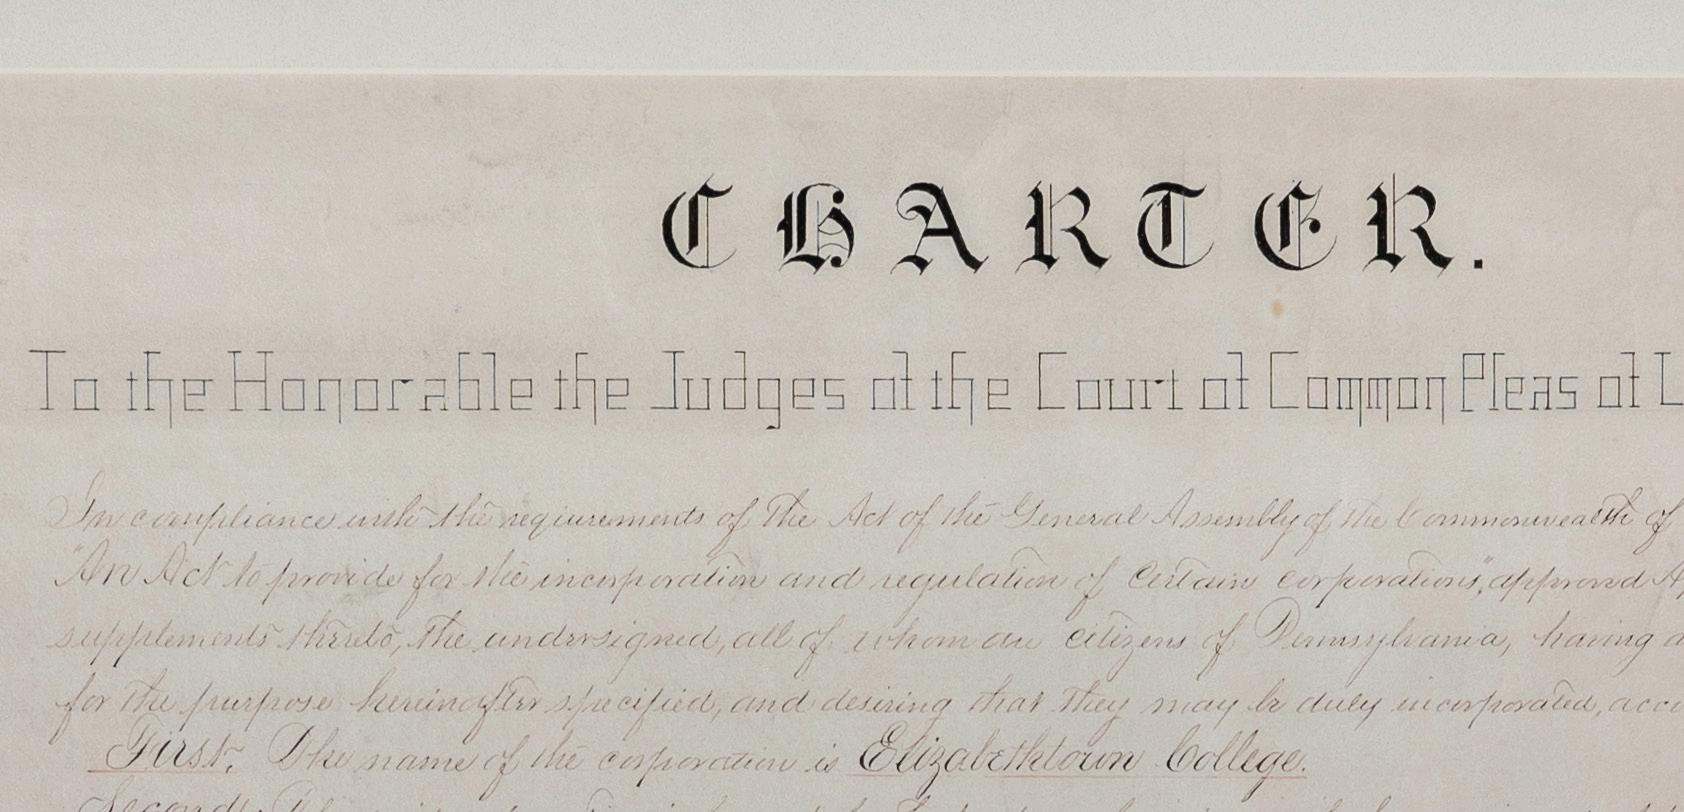 CHARTER.
To the Honorable the Judges of the Court of Common Pleas of L
In compliance with the requirements of the Act of the General Assembly of the Commonwealth of
"An Act to provide for the incorporation and regulation of Certain corporations", approved Ap
supplements thereto, the undersigned, all of whom are citizens of Pennsylvania, having a
for the purpose hereinafter specified, and desiring that they may be duly incorporated, acco
First. The name of the corporation is Elizabethtown College.
Second: